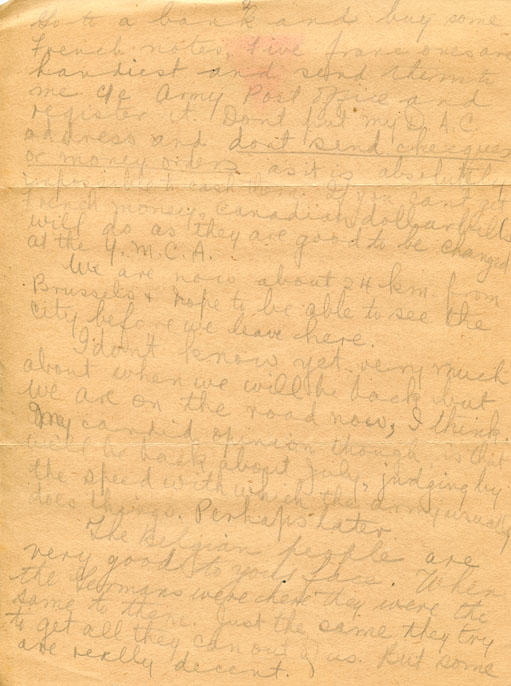 Go to a bank and buy some
French notes, five franc ones are
handiest and send them to
me c/o Army Post Office and
register it. Dont put my D.A.C.
address and dont send cheques
or money orders as it is absolutely
impossible to cash them. If you cant get
French money, canadian dollar bills
will do as they are good to be changed
at the Y.M.C.A.
We are now about 24 km. from
Brussels & hope to be able to see the
city before we leave here.
I don't know yet very much
about when we will be back but
we are on the road now, I think.
My candid opinion though is that
we'll be back about July, judging by
the speed with which the army usually
does things. Perhaps later.
The Belgian people are
very good to your face. When
the Germans were here they were the
same to them. Just the same they try
to get all they can out of us. But some
are really decent.